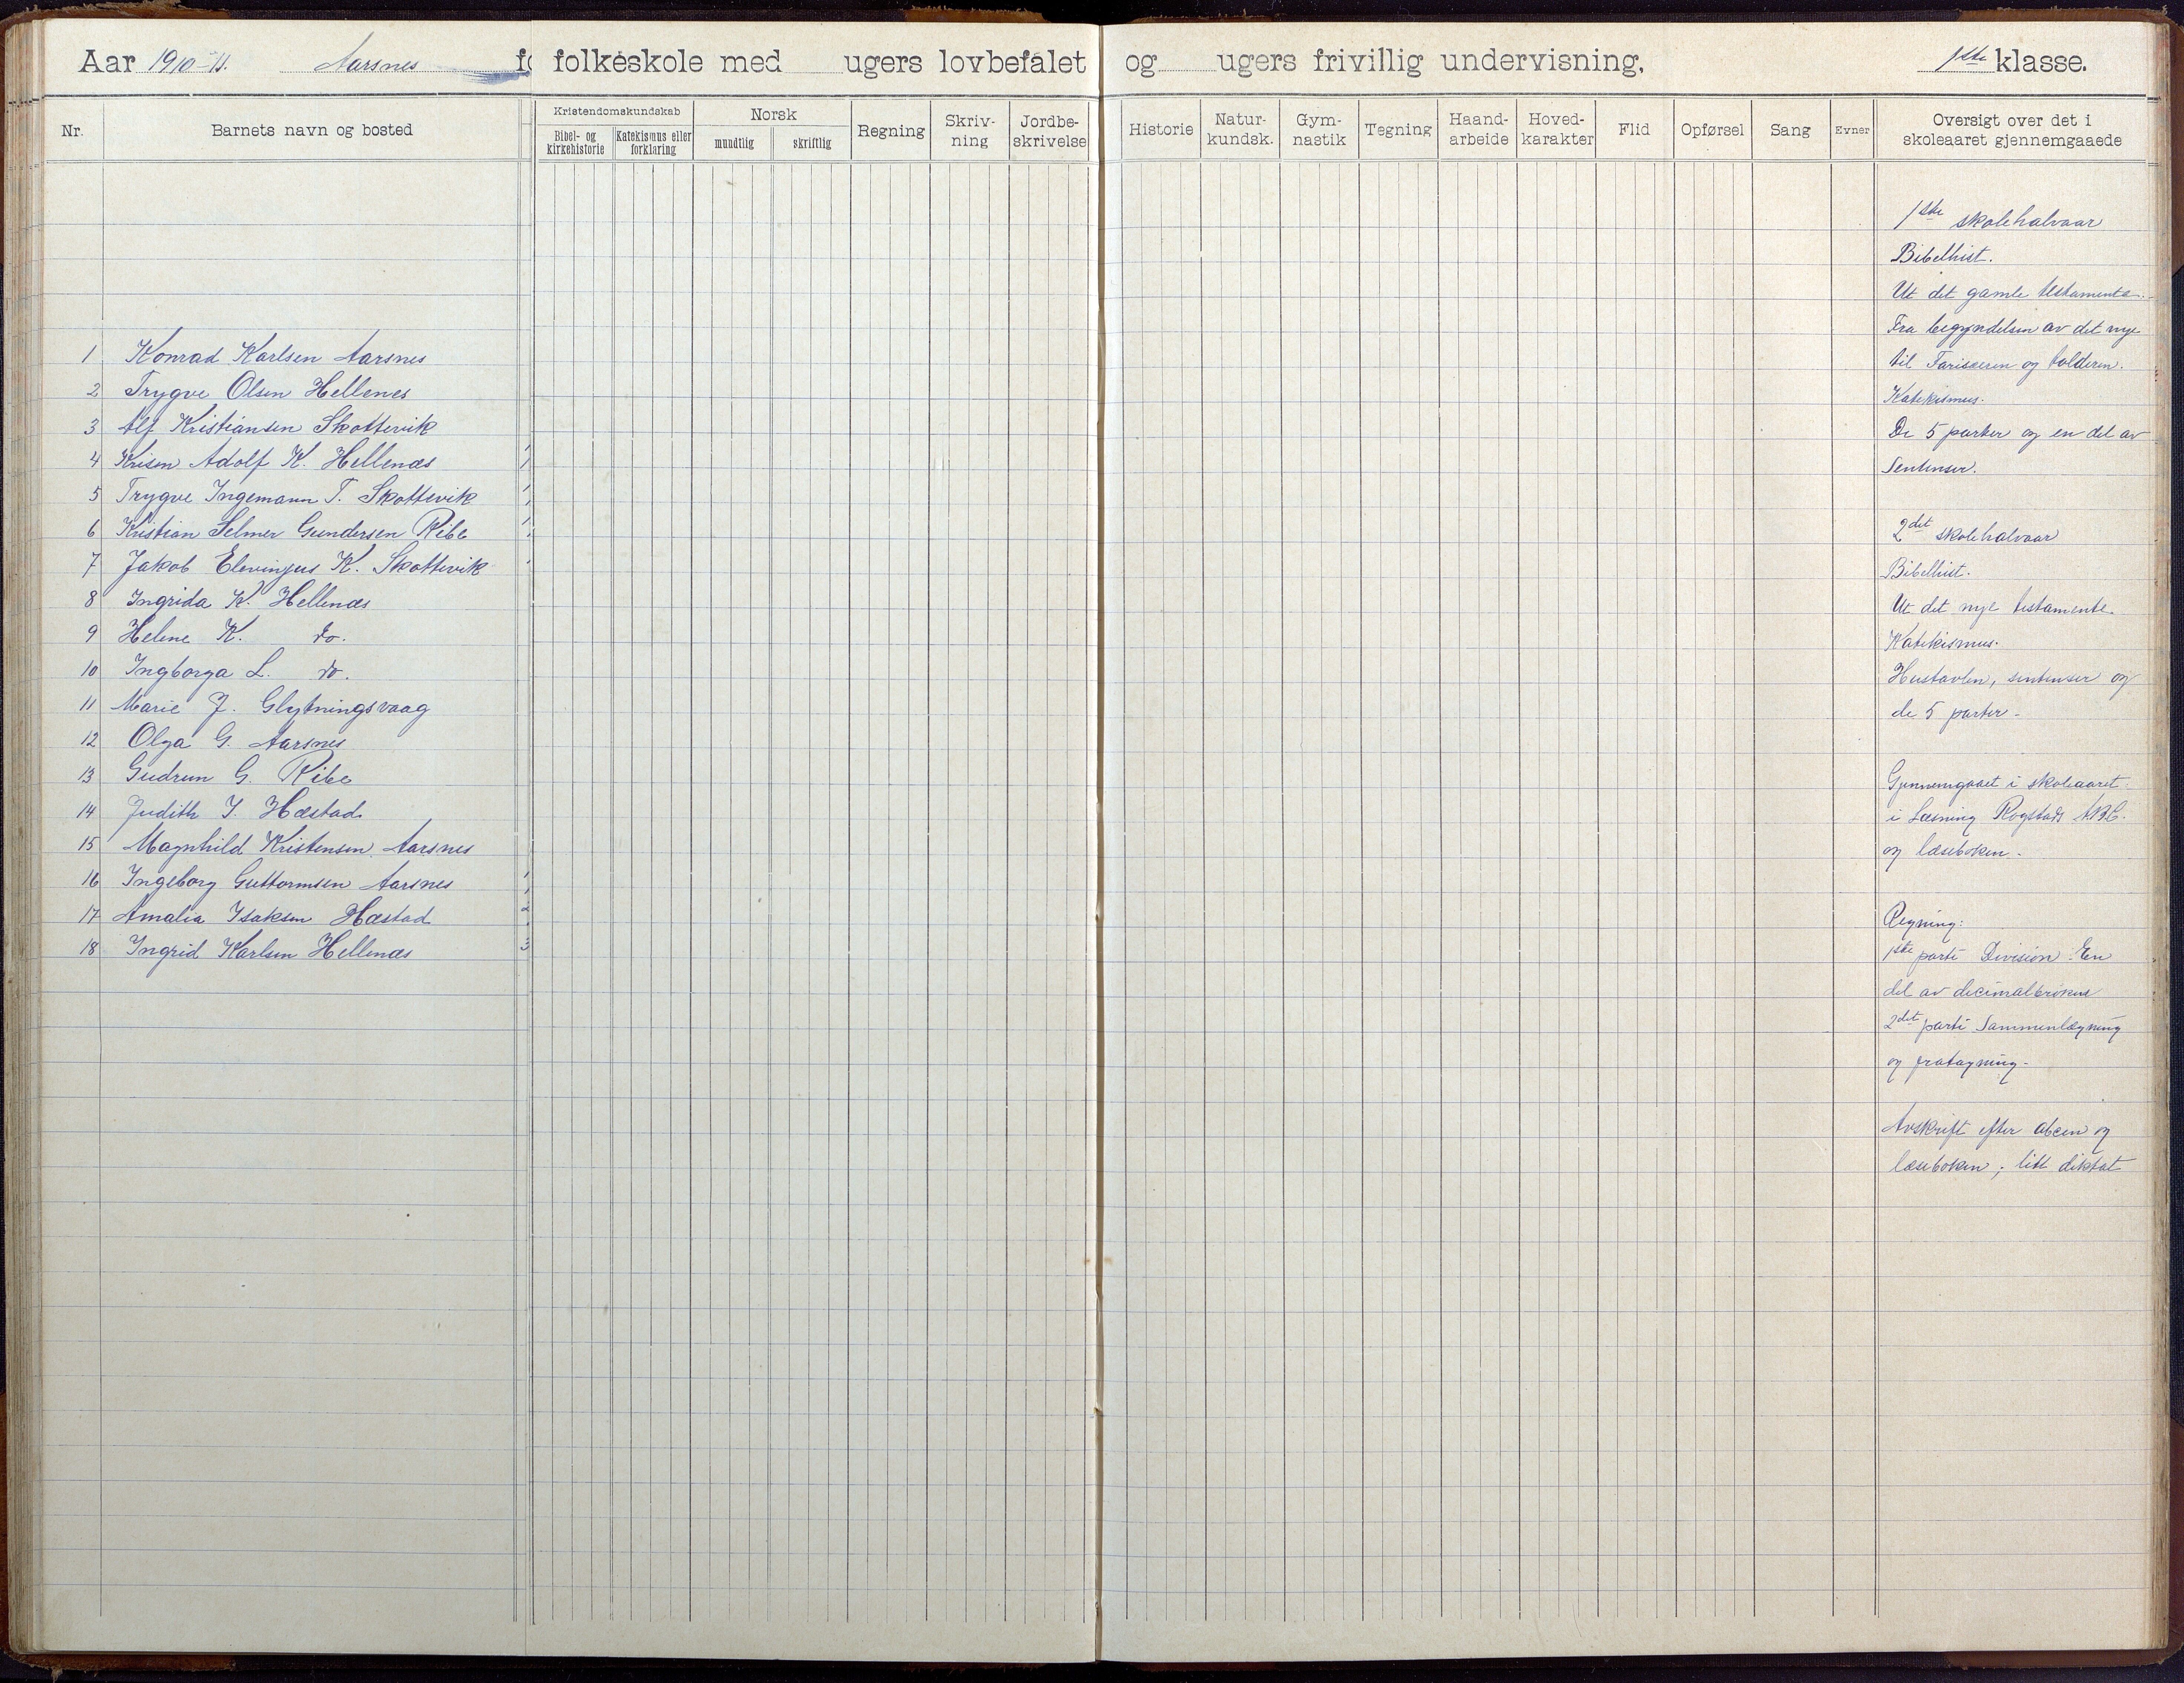 Aar 1910-11. Aarsnes folkeskole med ugers lovbefalet og ugers frivillig undervisning, 1ste klasse.
Nr. Barnets navn og bosted
Kristendomskundskab
Bibel- og kirkehistorie
Katekismus eller forklaring
Norsk
mundtlig
skriftlig
Regning
Skriv-
ning
Jordbe-
skrivelse
Historie
Natur-
kundsk.
Gym-
nastik
Tegning
Haand-
arbeide
Hoved-
karakter
Flid
Opførsel
Sang
Evner
Oversigt over det i
skoleaaret gjennemgaaede
1 Konrad Karlsen Aarsnes
2 Trygve Olsen Hellenes
3 Alf Kristiansen Skottevik
4 Adolf K. Hellenæs
5 Trygve Ingemann T. Skottevik
6 Kristian Selmer Gundersen Ribe
7 Jakob K. Skottevik
8 Ingrida K. Hellenæs
9 Helene K. do.
10 Ingborga L. do.
11 Marie J. Glytningsvaag
12 Olga G. Aarsnes
13 Gudrun G. Ribe
14 Judith I. Hæstad
15 Magnhild Kristensen Aarsnes
16 Ingeborg Guttormsen Aarsnes
17 Amalia Isaksen Hæstad
18 Ingrid Karlsen Hellenæs
1ste skolehalvaar
Bibelhist.
Ut det gamle testamente.
Fra begyndelsen av det nye
til Fariseeren og tolderen.
Katekismus.
De 5 parter og en del av
Sentenser.
2det skolehalvaar
Bibelhist.
Ut det nye testamente.
Katekismus.
Hustavlen, sentenser og
de 5 parter.
Gjennemgaaet i skoleaaret
i Læsning Rogstads ABC.
og læseboken.
Regning:
1ste parti Division. En
del av decimalbrøkene
2det parti Sammenlægning
og fratagning.
Avskrift efter abcen og
læseboken; litt diktat